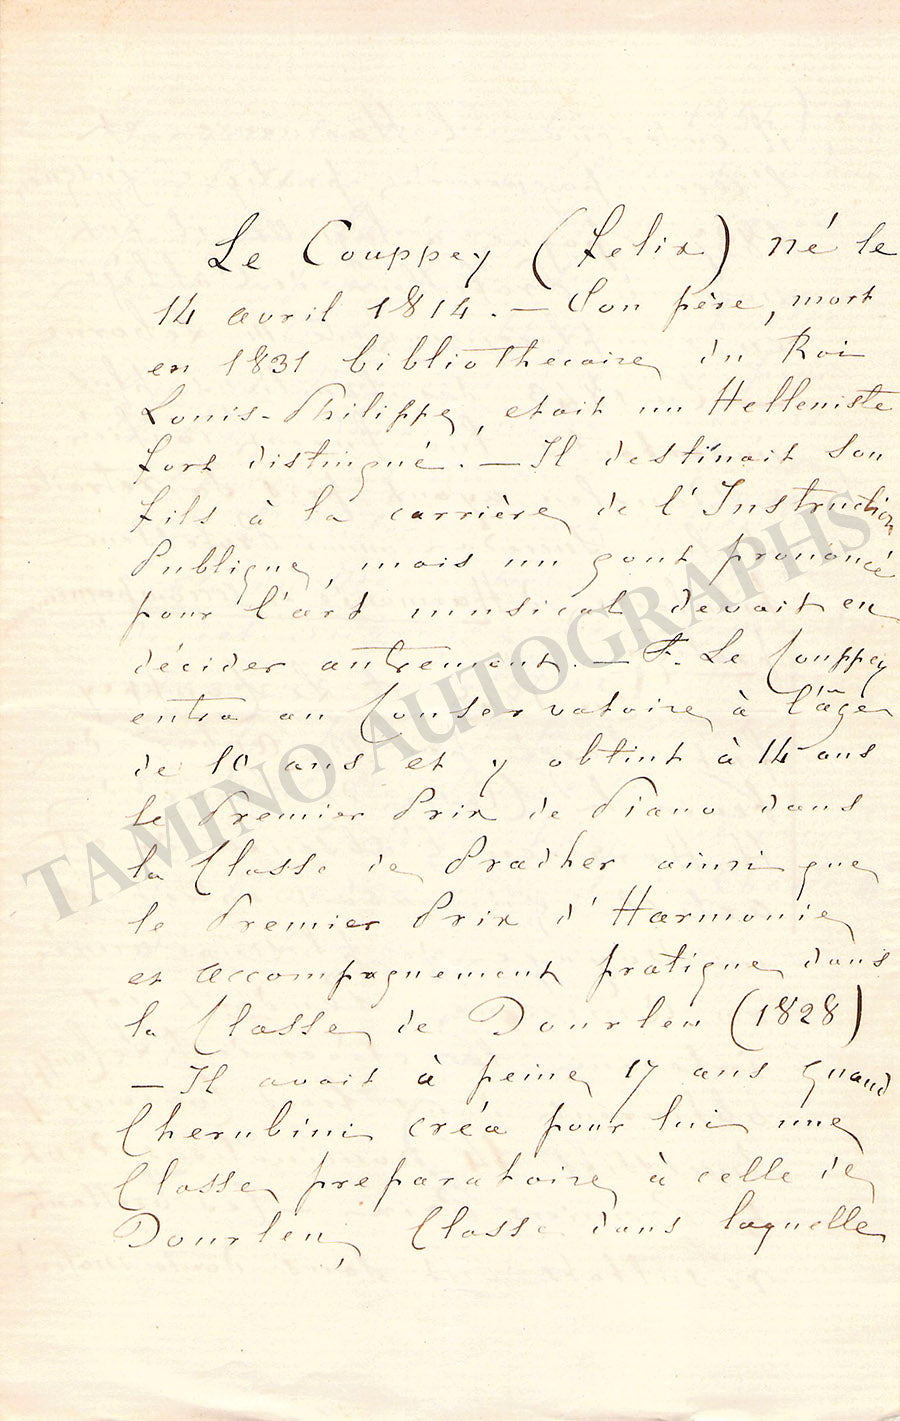 Le Couppey (Felix) né le
14 avril 1814. — Son père, mort
en 1831 bibliothecaire du Roi
Louis-Philippe, etait un Helleniste
fort distingué. — Il destinait son
fils à la carrière de l'Instruction
Publique, mais un gout prononcé
pour l'art musical devait en
décider autrement. — F. Le Couppey
entra au Conservatoire à l'âge
de 10 ans et y obtint à 14 ans
le Premier Prix de Piano dans
la Classe de Pradher ainsi que
le Premier Prix d'Harmonie
et accompagnement pratique dans
la Classe de Dourlen (1828)
— Il avait à peine 17 ans quand
Cherubini créa pour lui une
Classe preparatoire à celle de
Dourlen, Classe dans laquelle
TAMINO AUTOGRAPHS